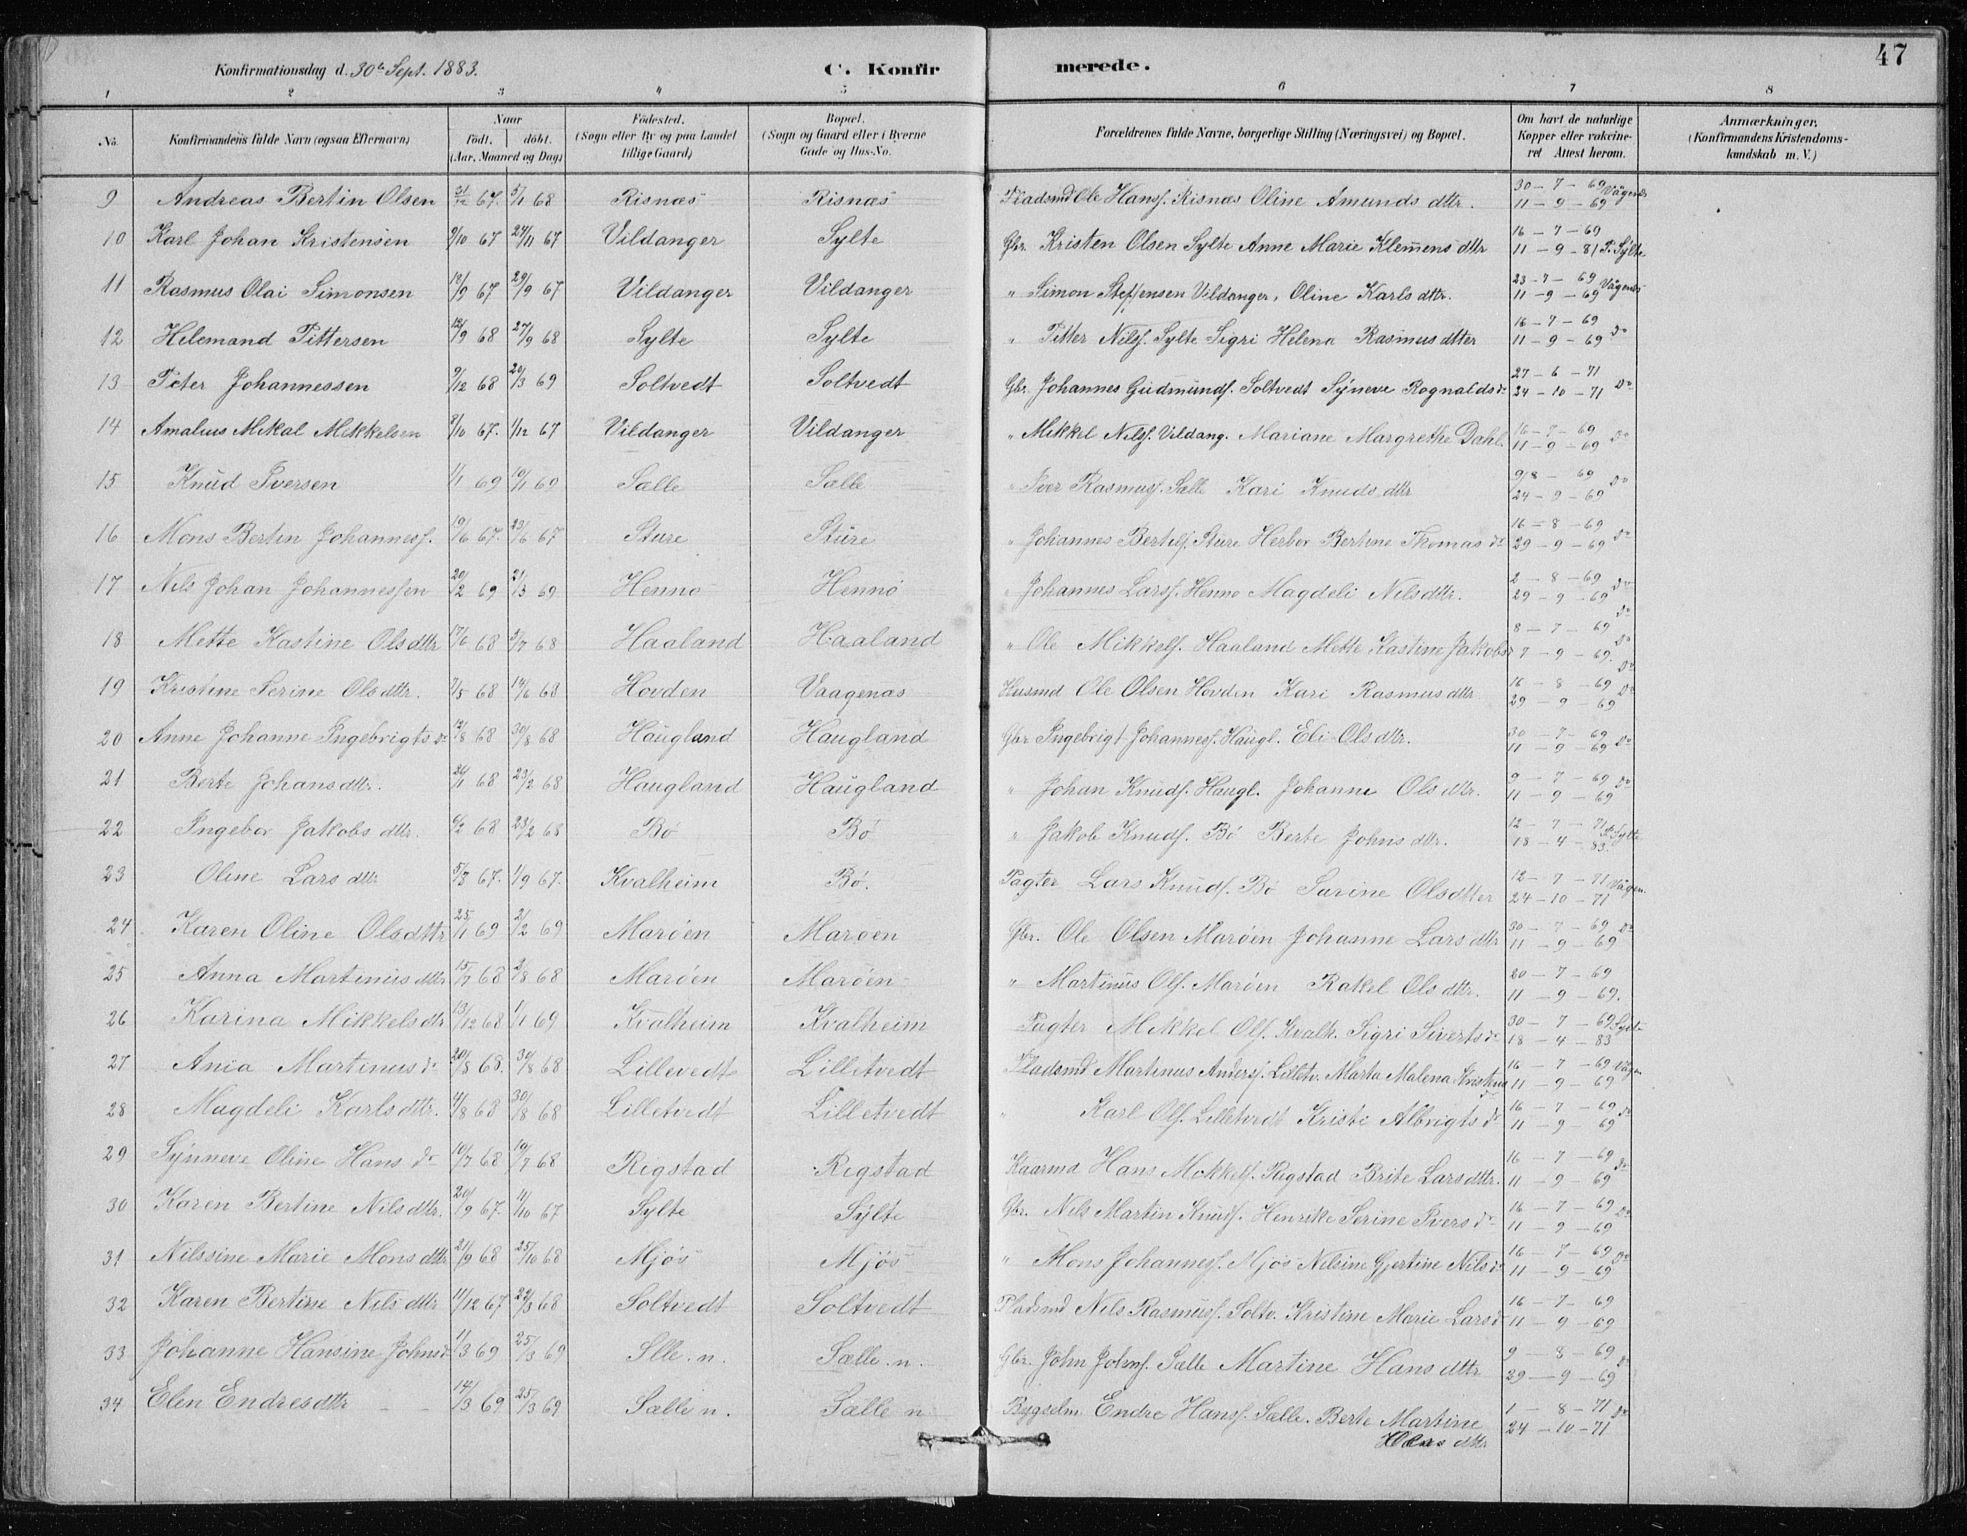 47
Konfirmationsdag d. 30te Sept. 1883.
C. Konfirmerede.
1 2 3 4 5 6 7 8
No. Konfirmandens fulde Navn (ogsaa Efternavn) Naar födt. döbt. (Aar, Maaned og Dag) Födested. (Sogn eller By og paa Landet tillige Gaard) Bopæl. (Sogn og Gaard eller i Byerne Gade og Hus-No. Forældrenes fulde Navne, borgerlige Stilling (Næringsvei) og Bopæl. Om havt de naturlige Kopper eller vakcineret Attest herom. Anmærkninger. (Konfirmandens Kristendomskundskab m. V.)
9 Andreas Bertin Olsen 31/12 67. 5/1 68 Risnæs Risnæs Pladsmd Ole Hansf. Risnæs Oline Amunds dttr. 30-7-69 11-9-69 Vågenæs
10 Karl Johan Kristensen 9/10 67 24/11 67 Vildanger Sylte Gbr. Kristen Olsen Sylte Anne Marie Klemens dttr 16-7-69 11-9-81 P. Sylte
11 Rasmus Olai Simonsen 18/9 67 29/9 67 Vildanger Vildanger " Simon Steffensen Vildanger, Oline Karls dttr. 23-7-69 11-9-69 Vågenæs
12 Hilemand Pittersen 12/9 68 27/9 68 Sylte Sylte " Pitter Nilsf. Sylte Sigri Helena Rasmusdtter 16-7-69 11-9-69 do
13 Peter Johannessen 9/12 68 20/3 69 Soltvedt Soltvedt Gbr. Johannes Gudmundf. Soltvedt Syneve Rognaldsdr 27-6-71 24-10-71 do
14 Amalius Mikal Mikkelsen 8/10 67. 1/12 67 Vildanger Vildanger " Mikkel Nilsf. Vildang. Mariane Margrethe Dahl. 16-7-69 11-9-69 do
15 Knud Iversen 1/1 69 10/1 69 Sælle Sælle " Iver Rasmusf. Sælle Kari Knuds dttr 9/8-69 24-9-69 do
16 Mons Bertin Johannesf. 19/6 67. 23/6 67 Sture Sture " Johannes Bertilsf. Sture Herbor Bertine Thomas dr 16-8-69 29-9-69 do
17 Nils Johan Johannessen 20/2 69 21/3 69 Henno Hennö " Johannes Larsf. Henno Magdeli Nilsdttr. 2-8-69 29-9-69 do
18 Mette Kastine Olsdttr 17/6 68 5/7 68 Haaland Haaland " Ole Mikkelf. Haaland Mette Kastine Jakobsd 8-7-69 7-9-69. do
19 Kristine Serine Olsdttr. 7/5 68 14/6 68 Hovden Vaagenæs Husmd Ole Olsen Hovden Kari Rasmusdttr 16-8-69 29-9-69 do
20 Anne Johanne Ingebrigtsdr 12/8 68 30/8 68 Haugland Haugland Gbr Ingebrigt Johannesf. Haugl. Eli Olsdttr. 30-7-69 11-9-69 do
21 Berte Johansdttr. 26/1 68 23/2 68 Haugland Haugland " Johan Knudf. Haugl. Johanne Olsdttr. 9-7-69 11-9-69 do
22 Ingebor Jakobs dttr. 6/2 68 23/2 68 Bö Bö " Jakob Knudf. Bö Berte Johns dttr. 12-7-71 18-4-83. P. Sylte
23 Oline Lars dttr 5/8 67. 1/9 67. Kvalheim Bö. Pagter Lars Knudf. Bö Sarine Olsdtter 12-7-71 24-10-71 Vågen.
24 Karen Oline Olsdttr 25/1 69 2/2 69 Maröen Maroen Gbr. Ole Olsen Maröen Johanne Lars dttr 30-7-69 11-9-69 do
25 Anna Martinus dttr 15/7 68 2/8 68 Maröen Maröen " Martinus Olf. Maröen Rakel Olsdttr. 20-7-69 11-9-69.
26 Karina Mikkels dtr 13/12 68 1/1 69 Kvalheim Kvalheim Pagter Mikkel Olf. Kvalh. Sigri Sivertsdr 30-7-69 18-4-83 Sylte
27 Ania Martinusdr 20/8 68. 30/8 68 Lillevedt Lilletvedt Pladsmd Martinus Andersf. Lilletv. Marta Malena Kristens dr 16-7-69 11-9-69 Vågen
28 Magdeli Karlsdttr. 4/8 68 30/8 68 Lilletvedt Lilletvedt " Karl Olf. Lilletvedt Kristi Albrigtsdr 16-7-69 11-9-69 do
29 Synneve Oline Hans dr 10/7 68 19/7 68 Rigstad Rigstad Kaarmd Hans Mikkelf. Rigstad Brite Larsdttr. 16-7-69 11-9-69 do
30 Karen Bertine Nilsdttr. 20/9 67. 11/10 67 Sylte Sylte Gbr. Nils Martin Knudf. Henrike Serine Iversdr 16-7-69 11-9-69 do
31 Nilssine Marie Monsdttr 21/9 68 25/10 68 Mjös Mjös " Mons Johannesf. Mjös Nilsine Gjertine Nilsdr 16-7-69 11-9-69 do
32 Karen Bertine Nilsdttr 11/12 67 22/3 68 Soltvedt Soltvedt Pladsmd Nils Rasmusf. Soltv. Kristine Marie Larsdr 16-7-69 11-9-69
33 Johanne Hansine Johnsdr 1/3 69 25/3 69 Slle. n. Sælle. n. Gbr. John Johnf. Sælle Martine Hansdttr 9-8-69 29-9-69 do
34 Elen Endresdttr 14/3 69 25/3 69 Sælle n. Sælle n Bygselm Endre Hansf. Sælle. Berte Martine 1-8-71 24-10-71 do
dttr